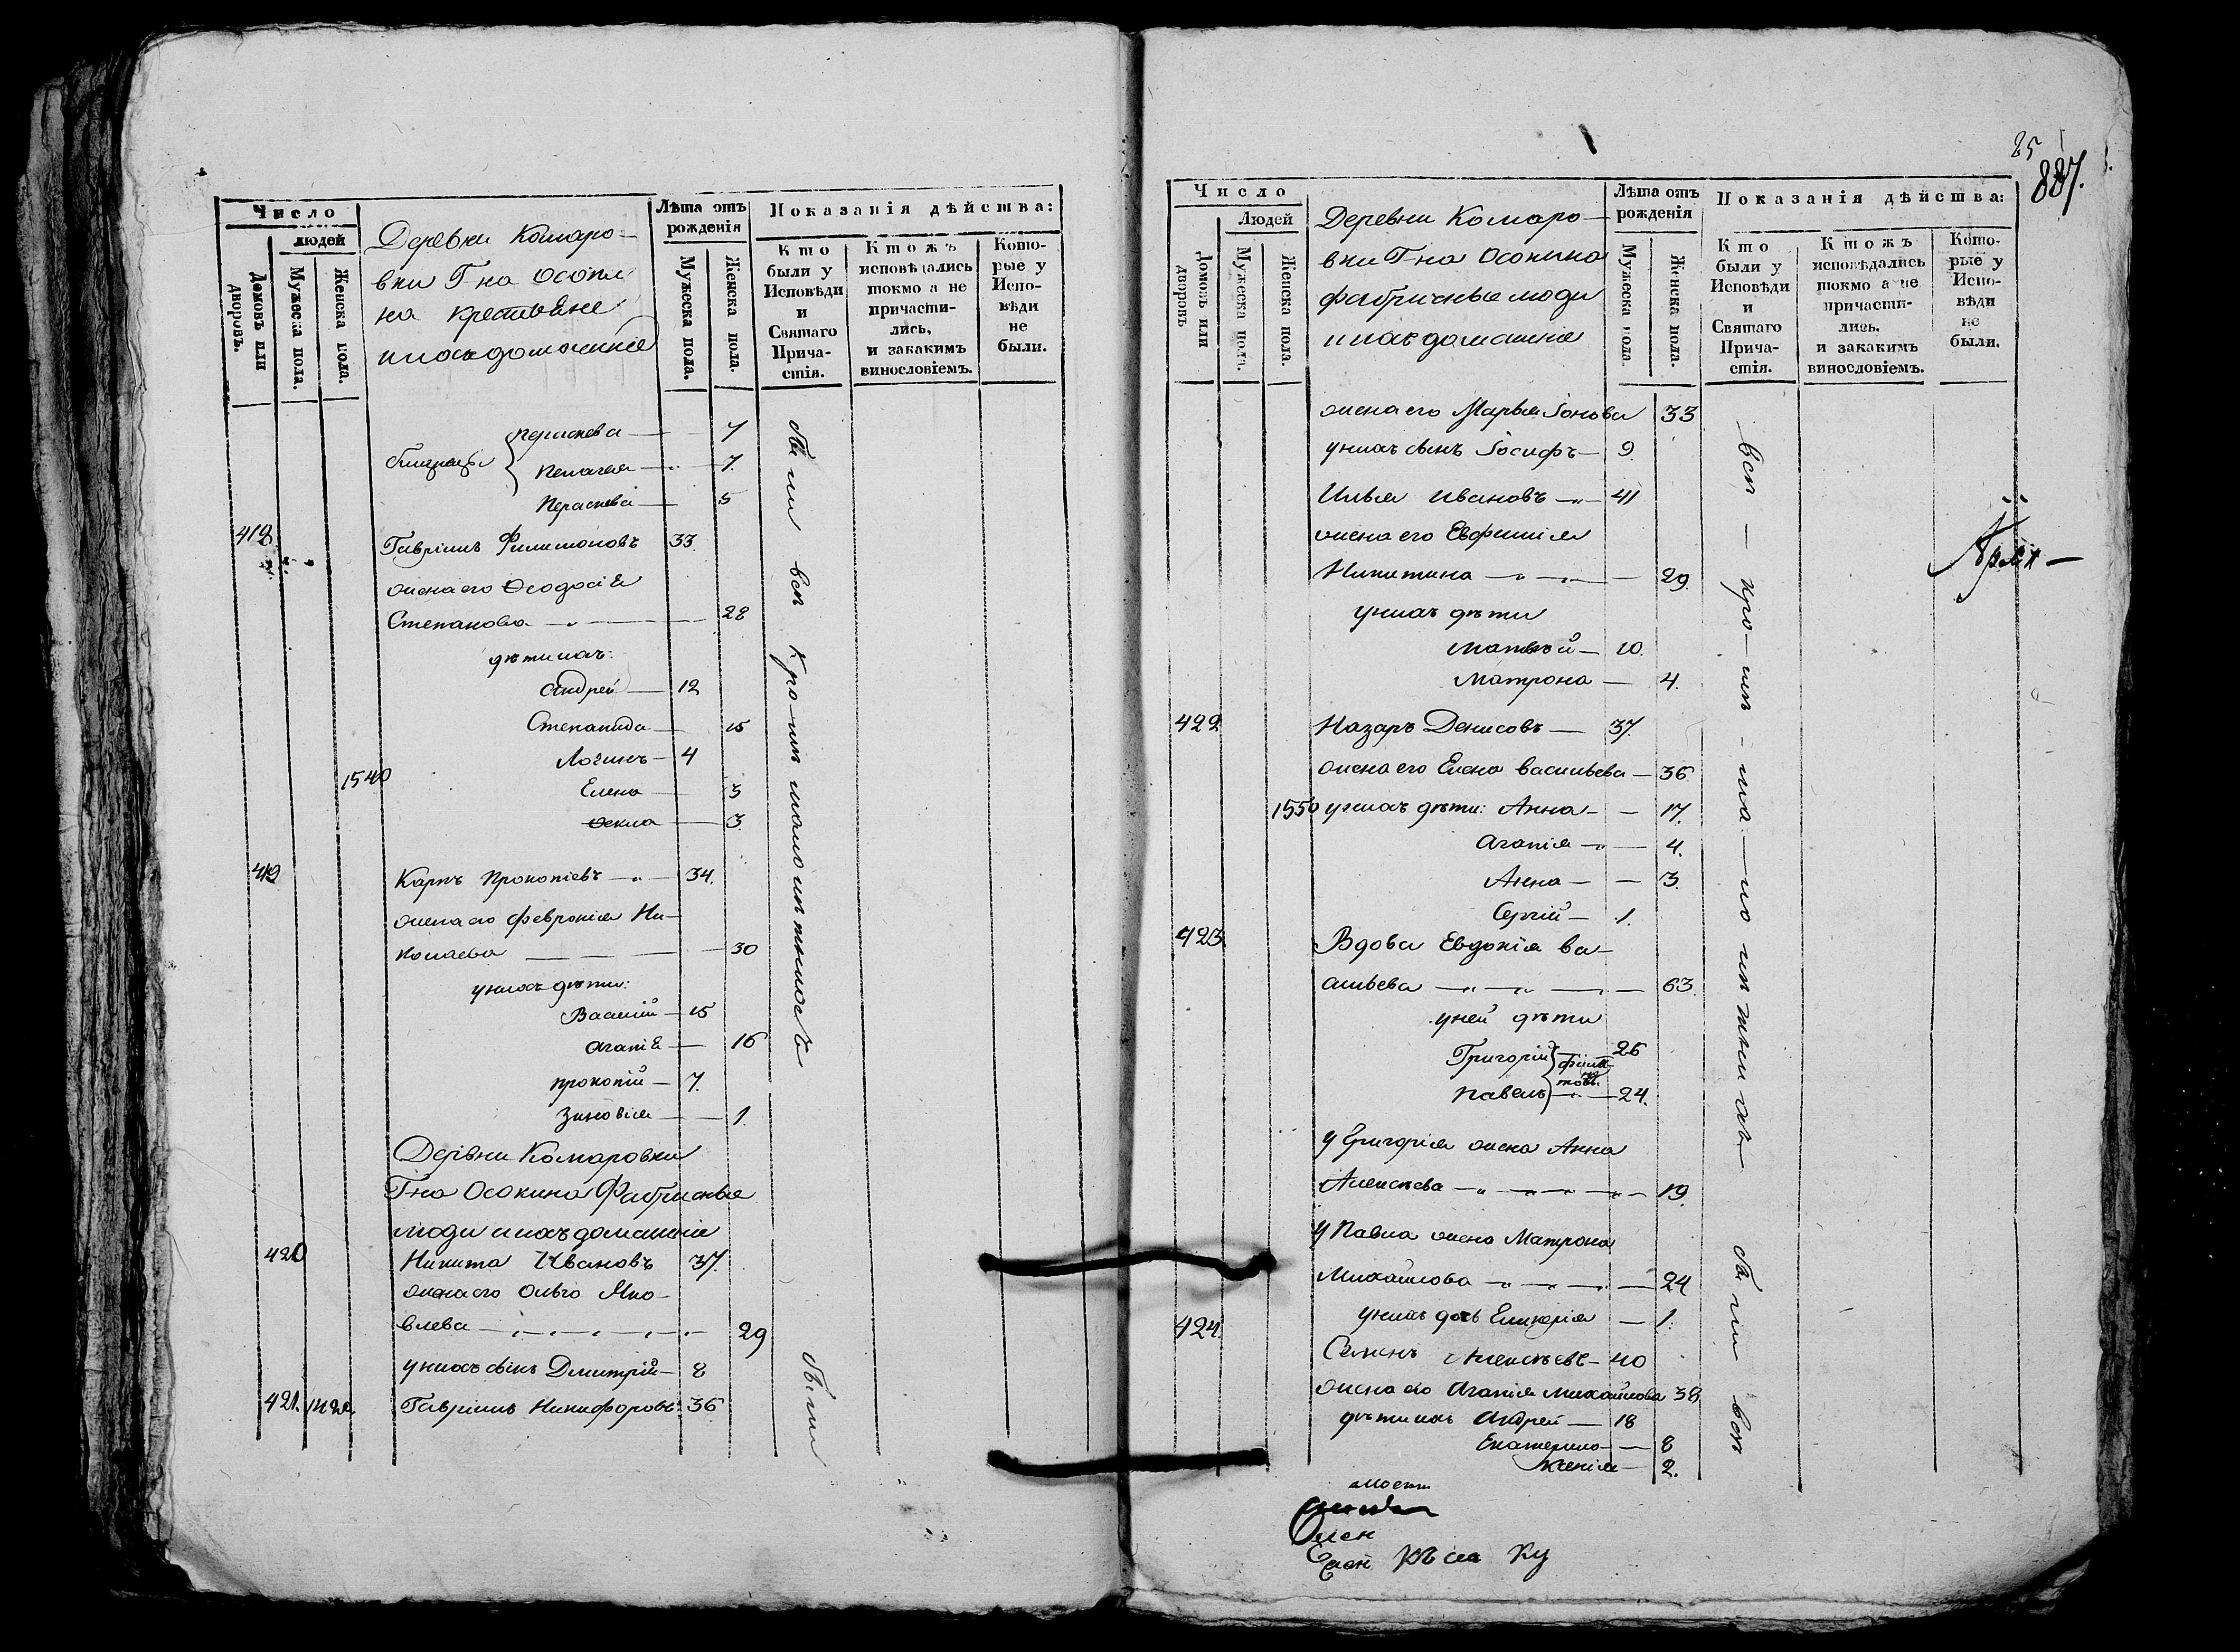 Число
людей
Домовъ или дворовъ.
Мужеска пола.
Женска пола.
Деревни Комаро-
вки Гна Осоки
на крестьяне
и ихъ домашнiе
Лѣта отъ рожденія
Мужеска пола.
Женска пола.
Показанія дѣйства:
Кто были у Исповѣди и Святаго Причастія.
Ктожъ исповѣдались токмо а не причастились, и закакимъ винословіемъ.
Которые у Исповѣди не были.
Параскева — 7
близнецы
Пелагея — 7.
Параскева — 5
418 Гавріилъ Филимоновъ 33.
жена его Ѳеодосія
Степанова — 28
дѣти ихъ:
Андрей — 12
Степанида — 15
Логинъ — 4
1540
Елена — 3
Ѳекла — 3.
419 Карпъ Прокопіевъ — 34.
жена его Февронія Ни-
колаева — 30
у нихъ дѣти:
Василій — 15
Агапія — 16
Прокопій — 7.
Зиновія — 1.
Деревни Комаровки
Гна Осокина Фабричные
люди и ихъ домашніе
420 Никита Ивановъ 37.
жена его Ольга Яко-
влева — 29
у нихъ сынъ Дмитрій — 8
421. Гавріилъ Никифоровъ 36
были всѣ кромѣ малолѣтныхъ
были
25
887.
Число
Людей
Домовъ или дворовъ
Мужеска пола.
Женска пола.
Деревни Комаро-
вки Гна Осокина
фабричные люди
и ихъ домашніе
Лѣта отъ рожденія
Мужеска пола.
Женска пола.
Показанія дѣйства:
Кто были у Исповѣди и Святаго Причастія.
Ктожъ исповѣдались токмо а не причастились. и закакимъ винословіемъ.
Которые у Исповѣди не были.
жена его Марья Іонова 33
у нихъ сынъ Іосифъ — 9.
Илья Ивановъ — 41
жена его Евфимія
Никитина — 29.
у нихъ дѣти
Матвѣй — 10.
Матрона — 4.
422 Назаръ Денисовъ — 37.
жена его Елена Васильева — 36
1550 у нихъ дѣти: Анна — 17.
Агапія — 4.
Анна — 3.
Сергій — 1.
423. Вдова Евдокія Ва-
сильева — 63.
у ней дѣти
Григорій — 26
Павелъ — 24.
у Григорія жена Анна
Алексѣева — 19.
у Павла жена Матрона
Михайлова — 24
у нихъ дочь Гликерія — 1.
424. Семенъ Алексѣевъ — 40
жена его Агапія Михайлова 38
дѣти ихъ Андрей — 18
Екатерина — 8
Ксенія — 2.
всѣ — кро — мѣ — ма — ло лѣтнихъ
были всѣ